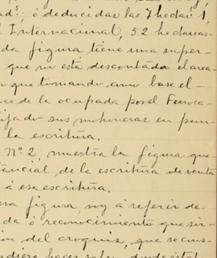 ad⁵, ó deducidas las 7 hectar⁵ 1,
Internacional, 52 hectareas
da figura tiene una super-
que no está descontada el area
que tomando como base el
de la ocupada por el Ferroca-
fijado sus mohoneras en pun-
la escritura.
Nº 2, muestra la figura que
tancial, de la escritura de venta
á esa escritura.
figura, voy á referir de-
da ó reconocimiento que sir-
del croquis, que acaus-